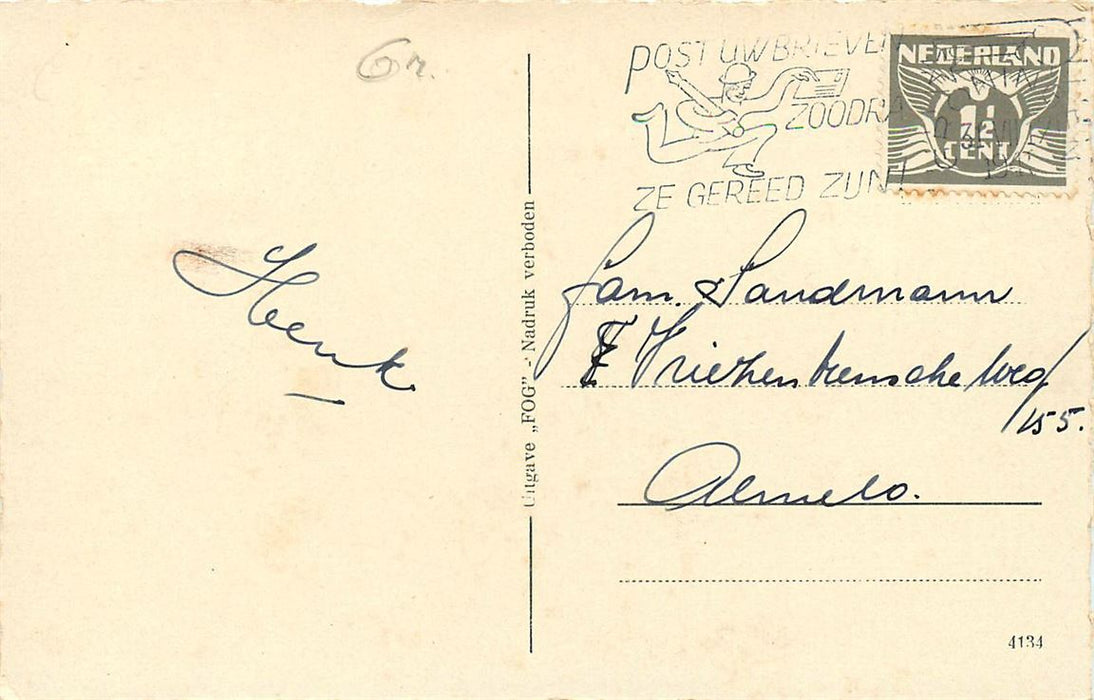 6r.
POST UW BRIEVEN
ZOODRA
ZE GEREED ZIJN!
NEDERLAND
1½
CENT
Henk
Fam. Sandmann
Vriezenveensche Weg
155.
Almelo.
Uitgave „FOG” - Nadruk verboden
4134